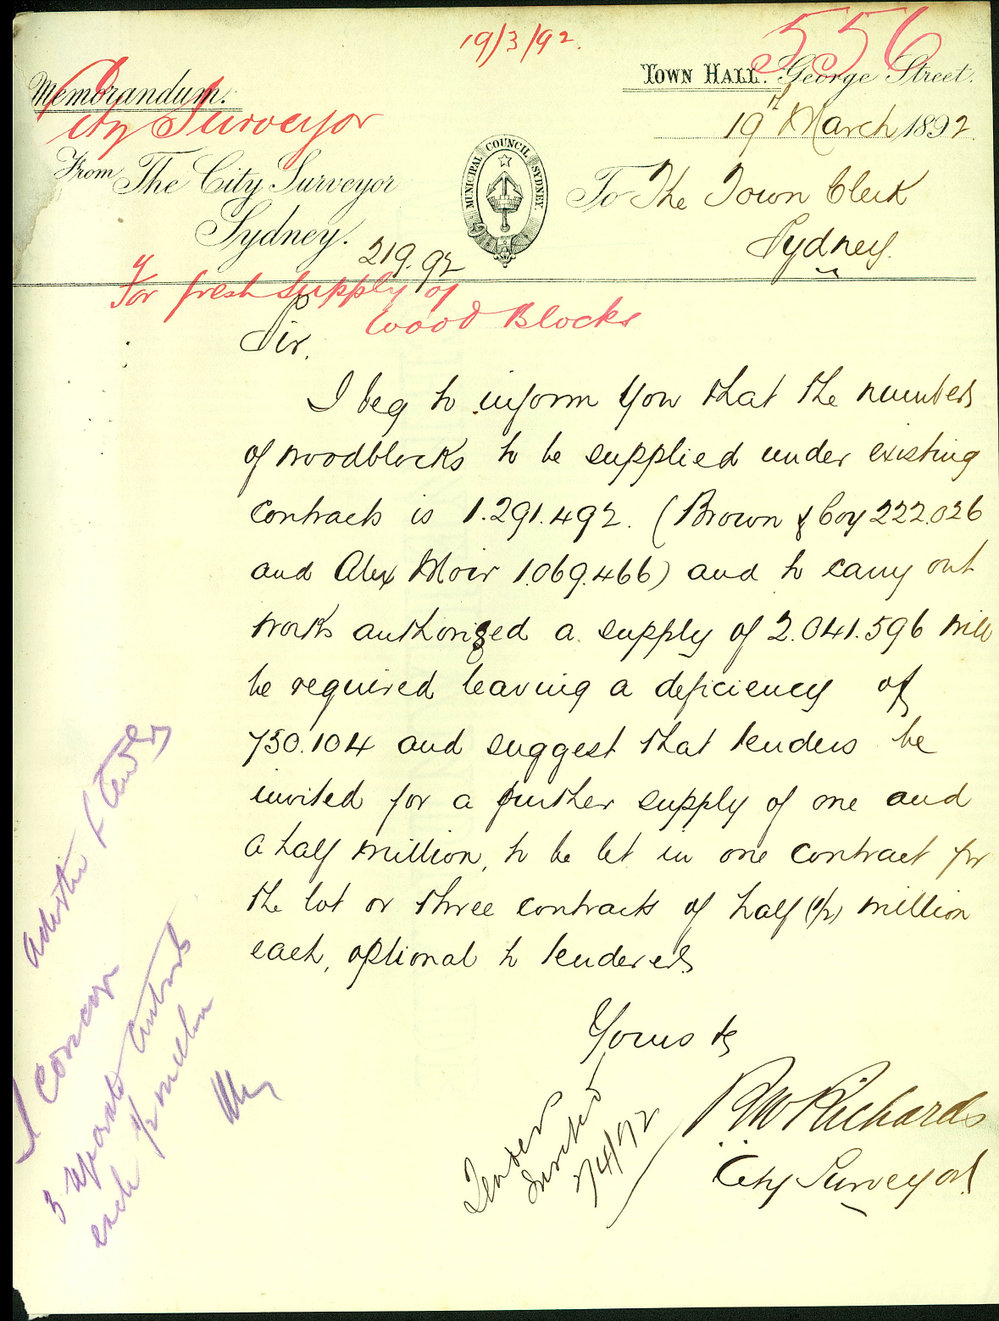 19/3/92.
556
TOWN HALL. George Street.
Memorandum.
City Surveyor
19th March, 1892.
From The City Surveyor
Sydney.
MUNICIPAL COUNCIL SYDNEY.
To The Town Clerk
Sydney.
219.92
For fresh supply of
Wood Blocks
Sir,
I beg to inform you that the numbers
of woodblocks to be supplied under existing
contracts is 1.291.492. (Brown & Coy 222.026
and Alex Moir 1.069.466) and to carry out
works authorized a supply of 2.041.596 will
be required leaving a deficiency of
750.104 and suggest that tenders be
invited for a further supply of one and
a half million, to be let in one contract for
the lot or three contracts of half (1/2) million
each, optional to tenderers
Yours &c
R W Richards
City Surveyor
Tenders
Invited
/4/92
I concur
3 separate
each 1/2 million